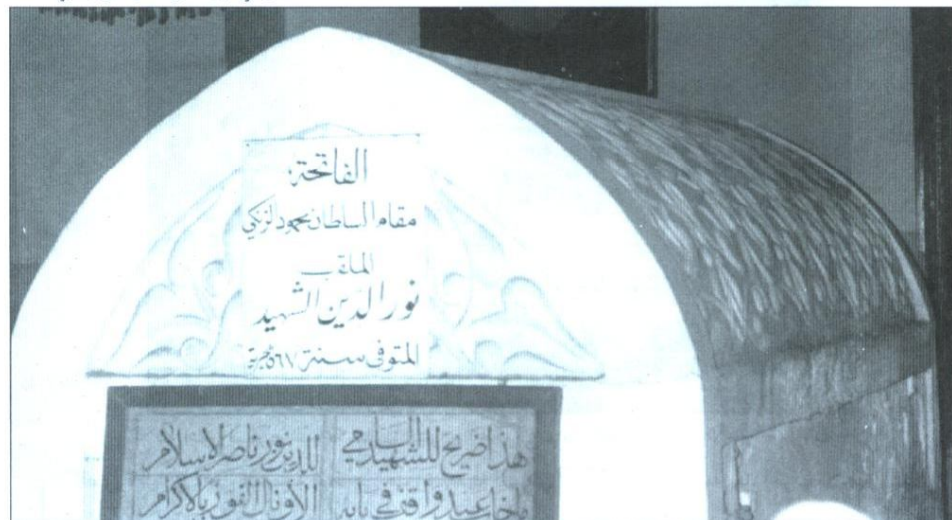 الفاتحة
مقام السلطان محمود الزنكي
الملقب
نور الدين الشهيد
المتوفى سنة ٥٦٧ هجرية
هذا ضريح للشهيد السامي للدين نور ناصر الاسلام
ما خاب عبد واقف في بابه الا ونال الفوز بالاكرام